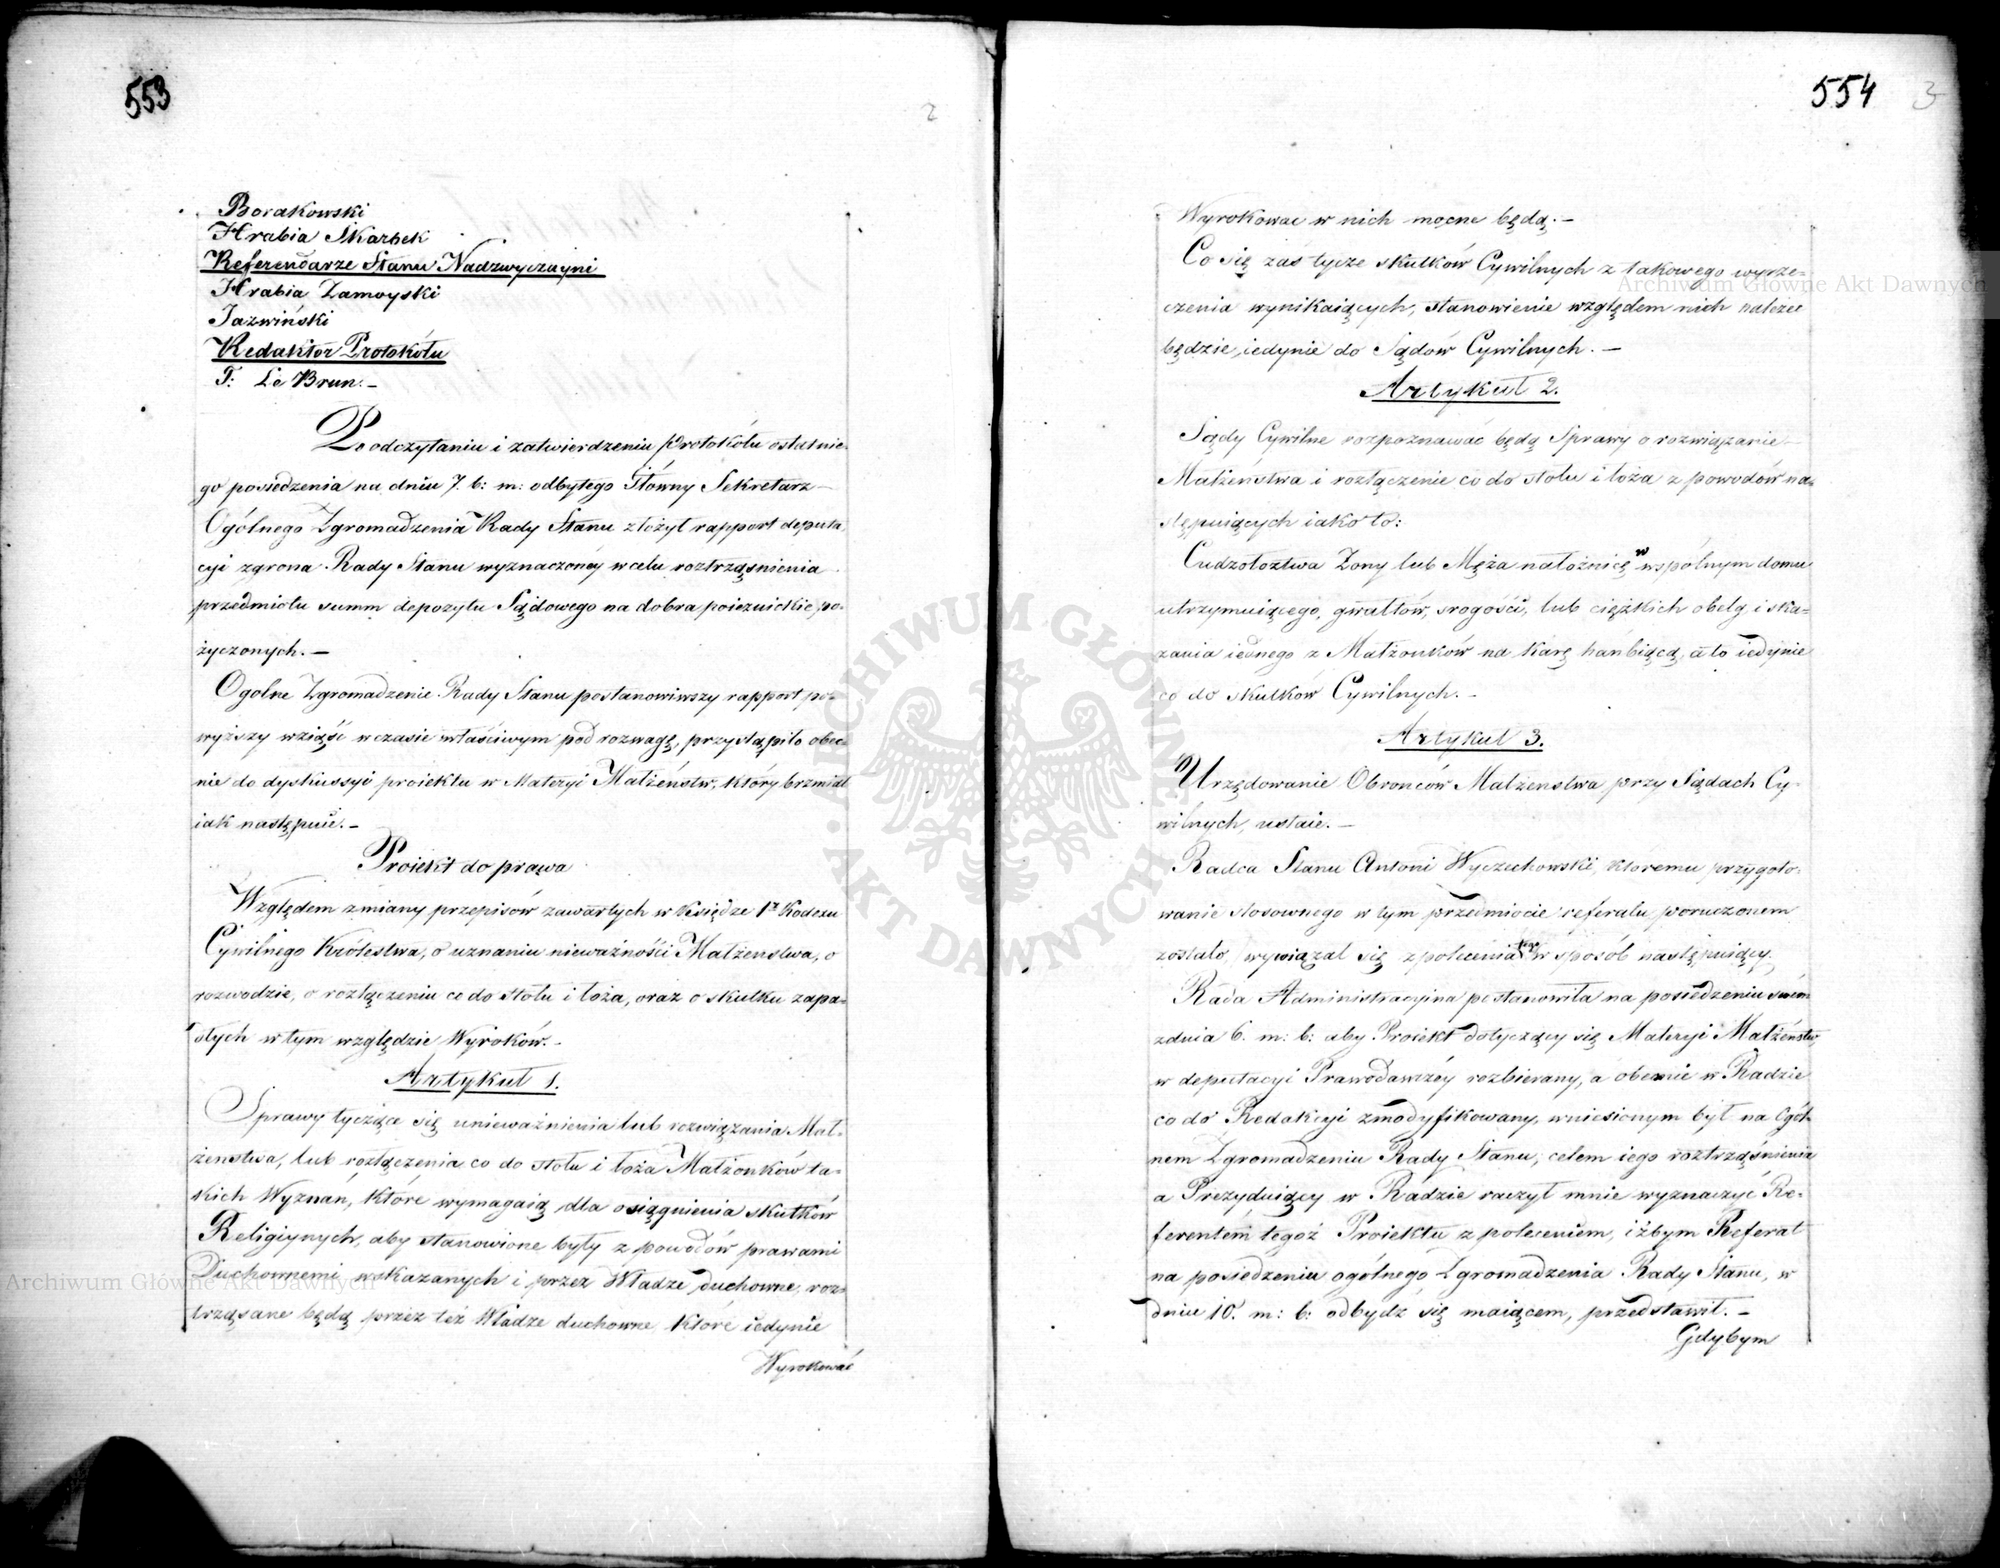 553
2
Borakowski
Hrabia Skarbek
Referendarze Stanu Nadzwyczayni
Hrabia Zamoyski
Jazwiński
Redaktor Protokółu
F: Le Brun. –
Po odczytaniu i zatwierdzeniu Protokółu ostatnie-
go posiedzenia na dniu 7. b: m: odbytego Główny Sekretarz –
Ogólnego Zgromadzenia Rady Stanu złożył rapport deputa-
cyi zgrona Rady Stanu wyznaczonéy w celu roztrząsnienia
przedmiotu summ depozytu Sądowego na dobra poiezuickie po-
życzonych. –
Ogolne Zgromadzenie Rady Stanu postanowiwszy rapport po-
wyższy wziąść w czasie właściwym pod rozwagę, przystąpiło obec-
nie do dyskussyi proiektu w Materyi Małżeństw, który brzmiał
iak następuie. –
Proiekt do prawa
Względem zmiany przepisów zawartych w Księdze 1ey Kodexu
Cywilnego Królestwa, o uznaniu nieważności Małżenstwa, o
rozwodzie, o rozłączeniu co do stołu i łoża, oraz o skutku zapa-
dłych w tym względzie Wyroków. –
Artykuł 1.
Sprawy tyczące się unieważnienia lub rozwiązania Mał-
żenstwa, lub rozłączenia co do stołu i łoża Małżonków ta-
kich Wyznań, które wymagaią dla osiągnienia skutków
Religiynych, aby stanowione były z powodów prawami
Duchownemi wskazanych i przez Władze duchowne, roz-
trząsane będą przez też Władze duchowne które iedynie
Wyrokować
554
3
Wyrokować w nich mocne będą. –
Co się zaś tycze skutków Cywilnych z takowego wyrze-
czenia wynikaiących, stanowienie względem nich należeć
będzie iedynie do Sądów Cywilnych. –
Artykuł 2.
Sądy Cywilne rozpoznawać będą Sprawy o rozwiązanie –
Małżeństwa i rozłączenie co do stołu i łoża z powodów na-
stępuiących iako to:
Cudzołoztwa Żony lub Męża nałożnicę w wspólnym domu
utrzymuiącego, gwałtów, srogości, lub ciężkich obelg, i ska-
zania iednego z Małżonków na karę hańbiącą, a to iedynie
co do skutków Cywilnych. –
Artykuł 3.
Urzędowanie Obronców Małżenstwa przy Sądach Cy-
wilnych, ustaie. –
Radca Stanu Antoni Wyczechowski, ktoremu przygoto-
wanie stosownego w tym przedmiocie referatu poruczonem
zostało, wywiązał się z polecenia tego w sposób następuiący.
Rada Administracyina postanowiła na posiedzeniu swém
z dnia 6. m: b: aby Proiekt dotyczący się Materyi Małżeństw,
w deputacyi Prawodawczéy rozbierany, a obecnie w Radzie
co do Redakcyi zmodyfikowany, wniesionym był na Ogól-
nem Zgromadzeniu Rady Stanu, celem iego roztrząśnienia
a Prezyduiący w Radzie raczył mnie wyznaczyć Re-
ferentem tegoż Proiektu z poleceniem, iżbym Referat
na posiedzeniu ogólnego Zgromadzenia Rady Stanu, w
dniu 10. m: b: odbydź się maiącem, przedstawił. –
Gdybym
ARCHIWUM GŁÓWNE
AKT DAWNYCH
Archiwum Główne Akt Dawnych
Archiwum Główne Akt Dawnych